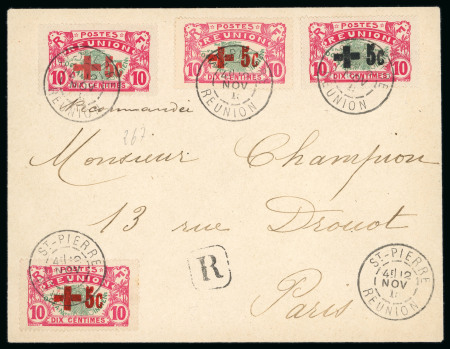 POSTES
RÉUNION
+ 5c
10 10
DIX CENTIMES
POSTES
RÉUNION
+ 5c
10 10
DIX CENTIMES
NOV
RÉUNION
POSTES
RÉUNION
+ 5c
10 10
DIX CENTIMES
NOV
RÉUNION
Recommandée
267
Monsieur Champion
13 rue Drouot
R
Paris
ST-PIERRE
POSTES
+ 5c
10 10
DIX CENTIMES
ST-PIERRE
NOV
RÉUNION